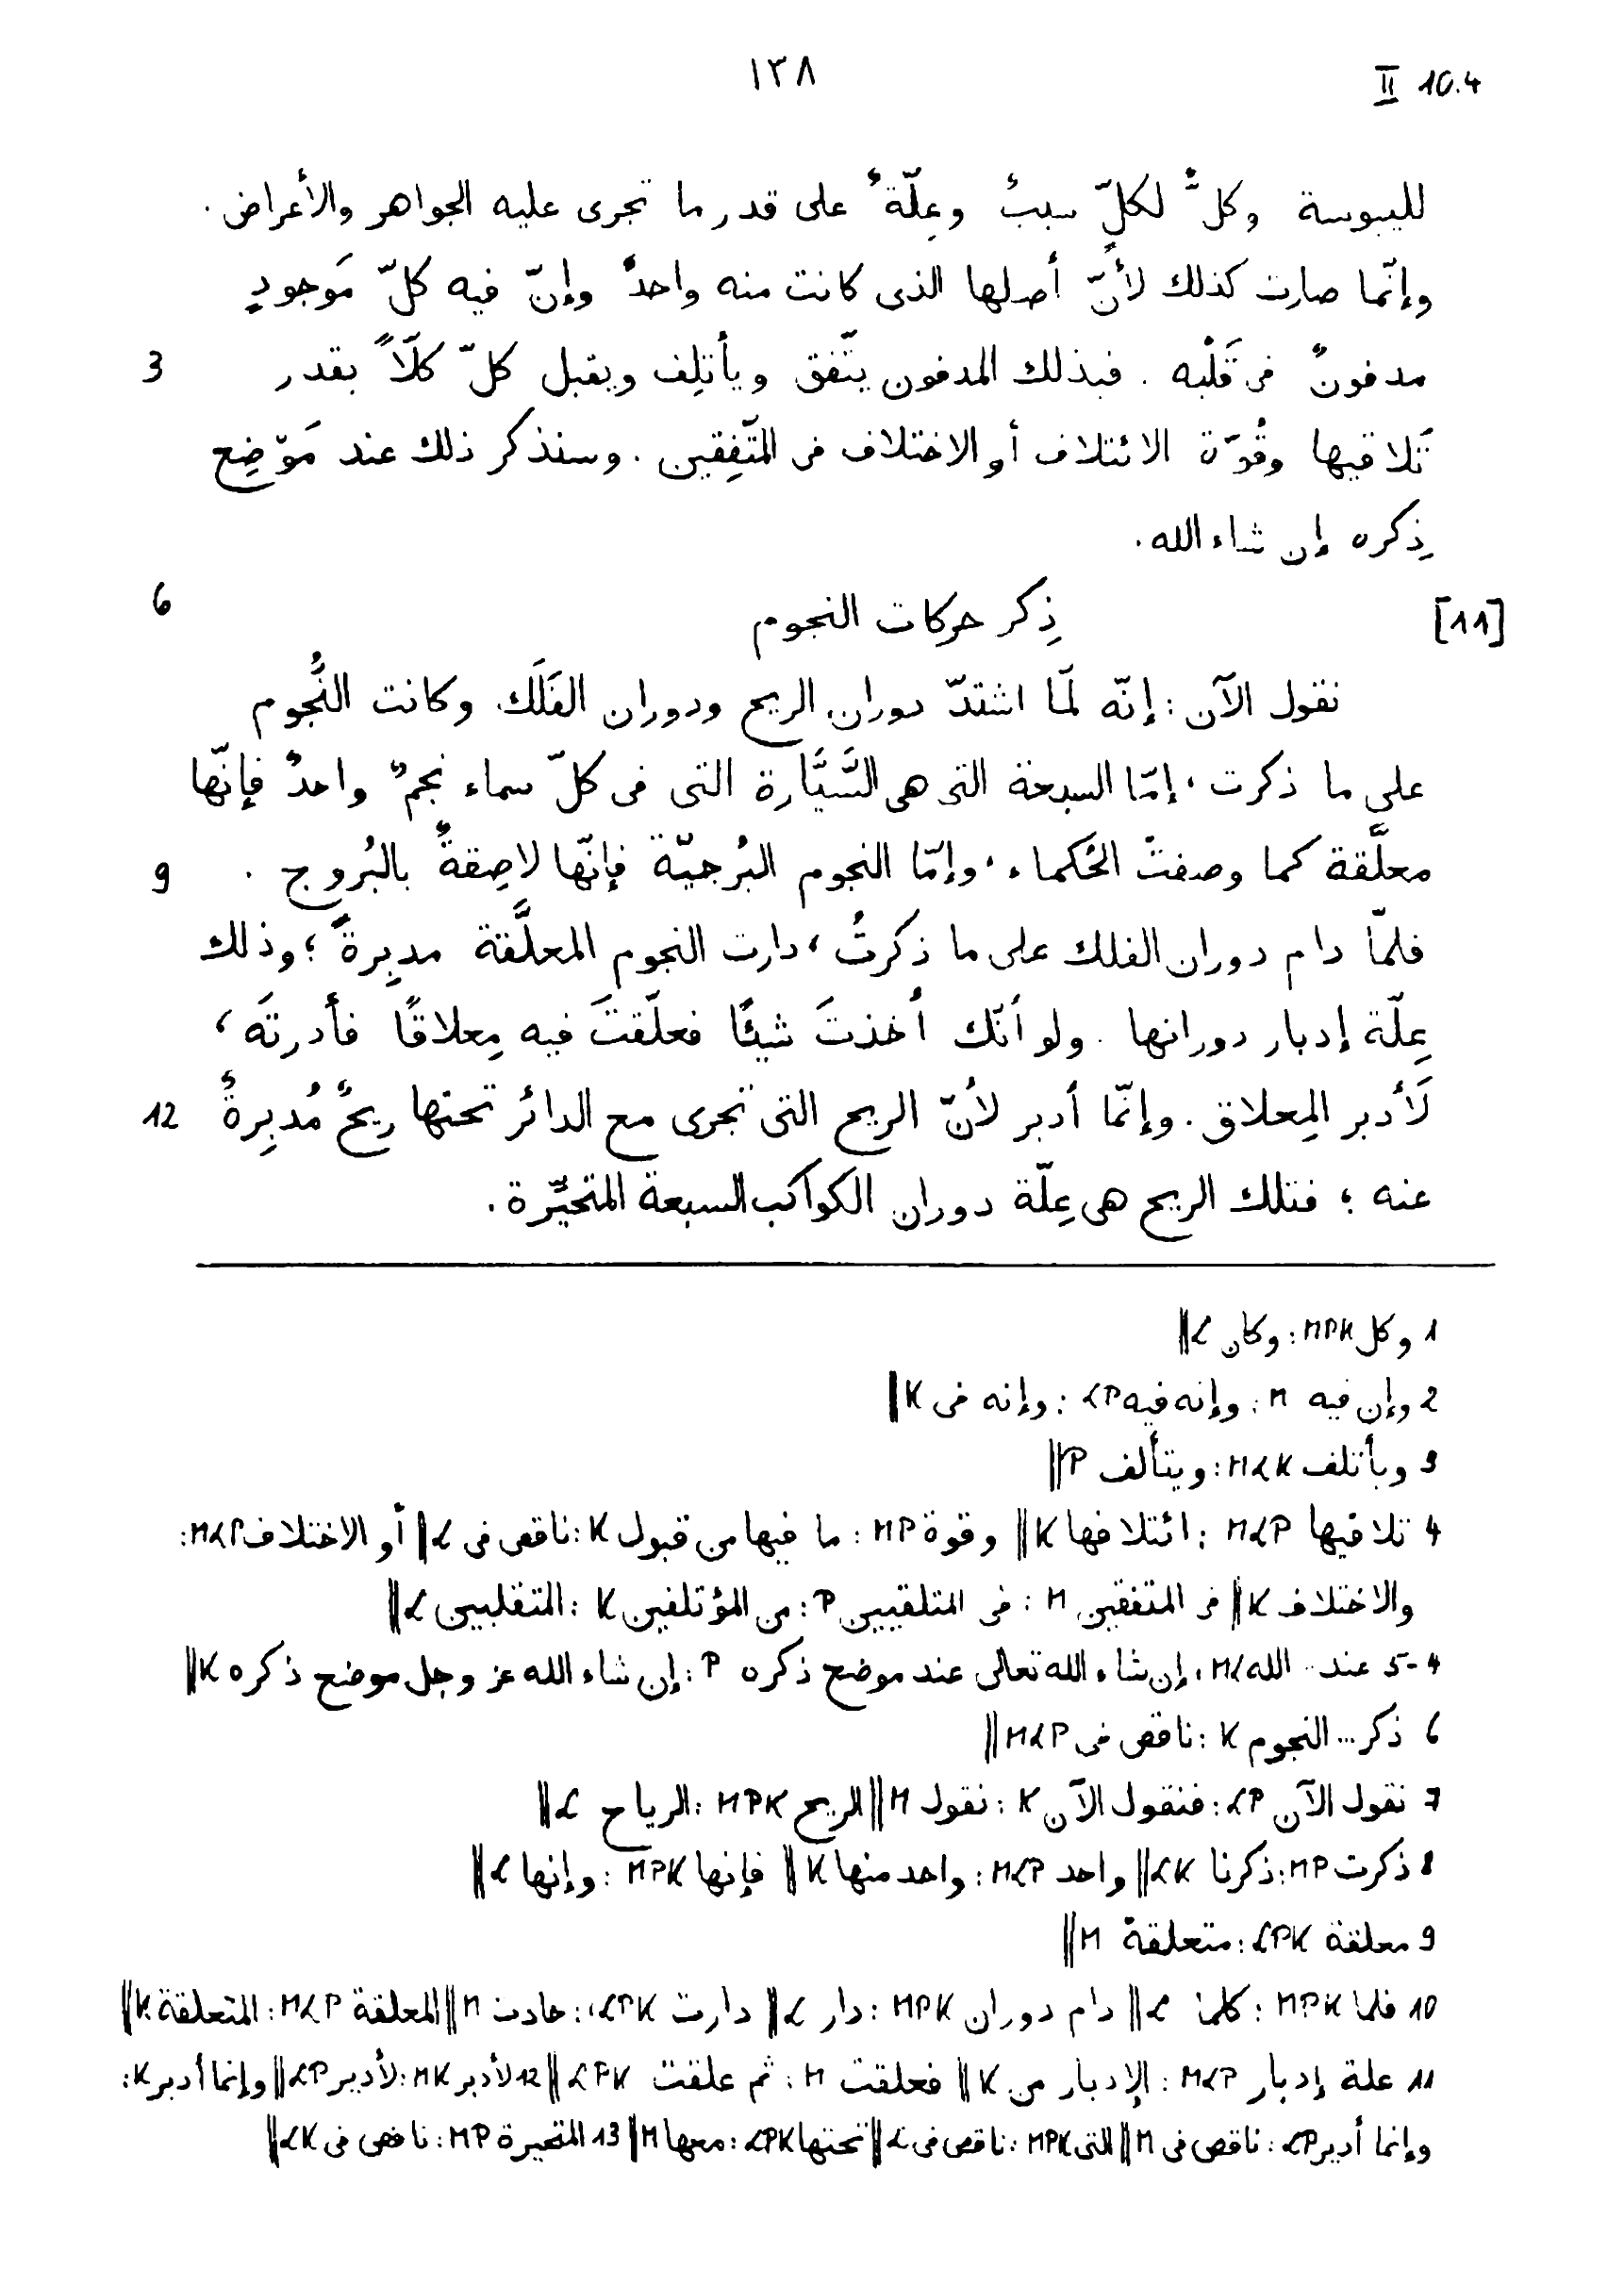 ١٣٨
II 10.4
لليبوسة وكلٌّ لكلٍّ سببٌ وعِلّةٌ على قدر ما تجرى عليه الجواهر والأعراض .
وإنّما صارت كذلك لأنّ أصلها الذى كانت منه واحدٌ وإنّ فيه كلّ مَوجودٍ
مدفونٌ فى قَلْبه . فبذلك المدفون يتّفق ويأتلِف ويقبل كلّ كلًّا بقدر 3
تَلاقيها وقُوّة الائتلاف أو الاختلاف فى المتّفِقين . وسنذكر ذلك عند مَوْضِع
ذِكره إن شاء الله .
[11] ذِكر حركات النجوم 6
نقول الآن : إنّه لَمّا اشتدّ دوران الريح ودوران الفَلَك وكانت النُّجوم
على ما ذكرت ، إمّا السبعة التى هى السَّيَّارة التى فى كلّ سماء نجمٌ واحدٌ فإنّها
معلَّقة كما وصفتْ الحُكماء ، وإمّا النجوم البُرجيّة فإنّها لاصِقةٌ بالبُروج . 9
فلمّا دام دوران الفلك على ما ذكرتُ ، دارت النجوم المعلَّقة مدبِرةً ؛ وذلك
عِلّة إدبار دورانها . ولو أنّك أخذتَ شيئًا فعلّقتَ فيه مِعلاقًا فأدرتَه ،
لَأدبر المِعلاق . وإنّما أدبر لأنّ الريح التى تجرى مع الدائر تحتها ريحٌ مُدبِرةٌ 12
عنه ؛ فتلك الريح هى عِلّة دوران الكواكب السبعة المتحيِّرة .
1 وكل MPK : وكان L ||
2 وإن فيه M : وإنه فيه LP : وإنه فى K ||
3 ويأتلف MLK : ويتألف P ||
4 تلاقيها MLP : ائتلافها K || وقوة MP : ما فيها من قبول K : ناقص فى L || أو الاختلاف MLP :
والاختلاف K || فى المتفقين M : فى المتلقيين P : من المؤتلفين K : المتقلبين L ||
4-5 عند ... الله ML : إن شاء الله تعالى عند موضع ذكره P : إن شاء الله عز وجل موضع ذكره K ||
6 ذكر ... النجوم K : ناقص فى MLP ||
7 نقول الآن LP : فنقول الآن K : نقول M || الريح MPK : الرياح L ||
8 ذكرت MP : ذكرنا LK || واحد MLP : واحد منها K || فإنها MPK : وإنها L ||
9 معلقة LPK : متعلقة M ||
10 فلما MPK : كلما L || دام دوران MPK : دار L || دارت LPK : حادت M || المعلقة MLP : المتعلقة K ||
11 علة إدبار MLP : الإدبار من K || فعلقت M : ثم علقت LPK || 12 لأدبر MK : لأدير LP || وإنما أدبر K :
وإنما أدير LP : ناقص فى M || التى MPK : ناقص فى L || تحتها LPK : معها M || 13 المتحيرة MP : ناقص فى LK ||